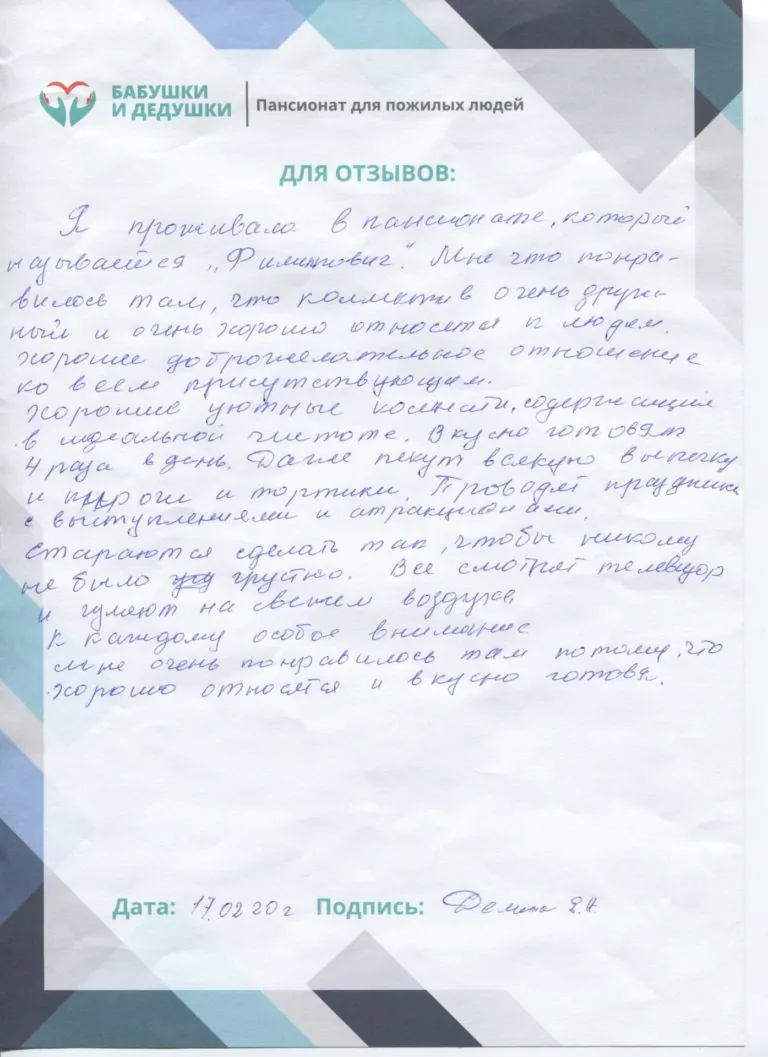 БАБУШКИ
И ДЕДУШКИ
Пансионат для пожилых людей
ДЛЯ ОТЗЫВОВ:
Я проживала в пансионате, который
называется „Филиппович“. Мне что понра-
вилось там, что коллектив очень друж-
ный и очень хорошо относется к людям.
Хорошее доброжелательное отношение
ко всем присутствующим.
Хорошие уютные комнаты, содержащие
в идеальной чистоте. Вкусно готовят
4 раза в день. Даже пекут всякую выпечку
и пироги и тортики. Проводят праздники
с выступлениями и атракционами.
Стараются сделать так, чтобы никому
не было грустно. Все смотрят телевизор
и гуляют на свежем воздухе
К каждому особое внимание
Мне очень понравилось там потому, что
хорошо относятся и вкусно готовя.
Дата: 17.02.20 г Подпись: Демина Е.Н.